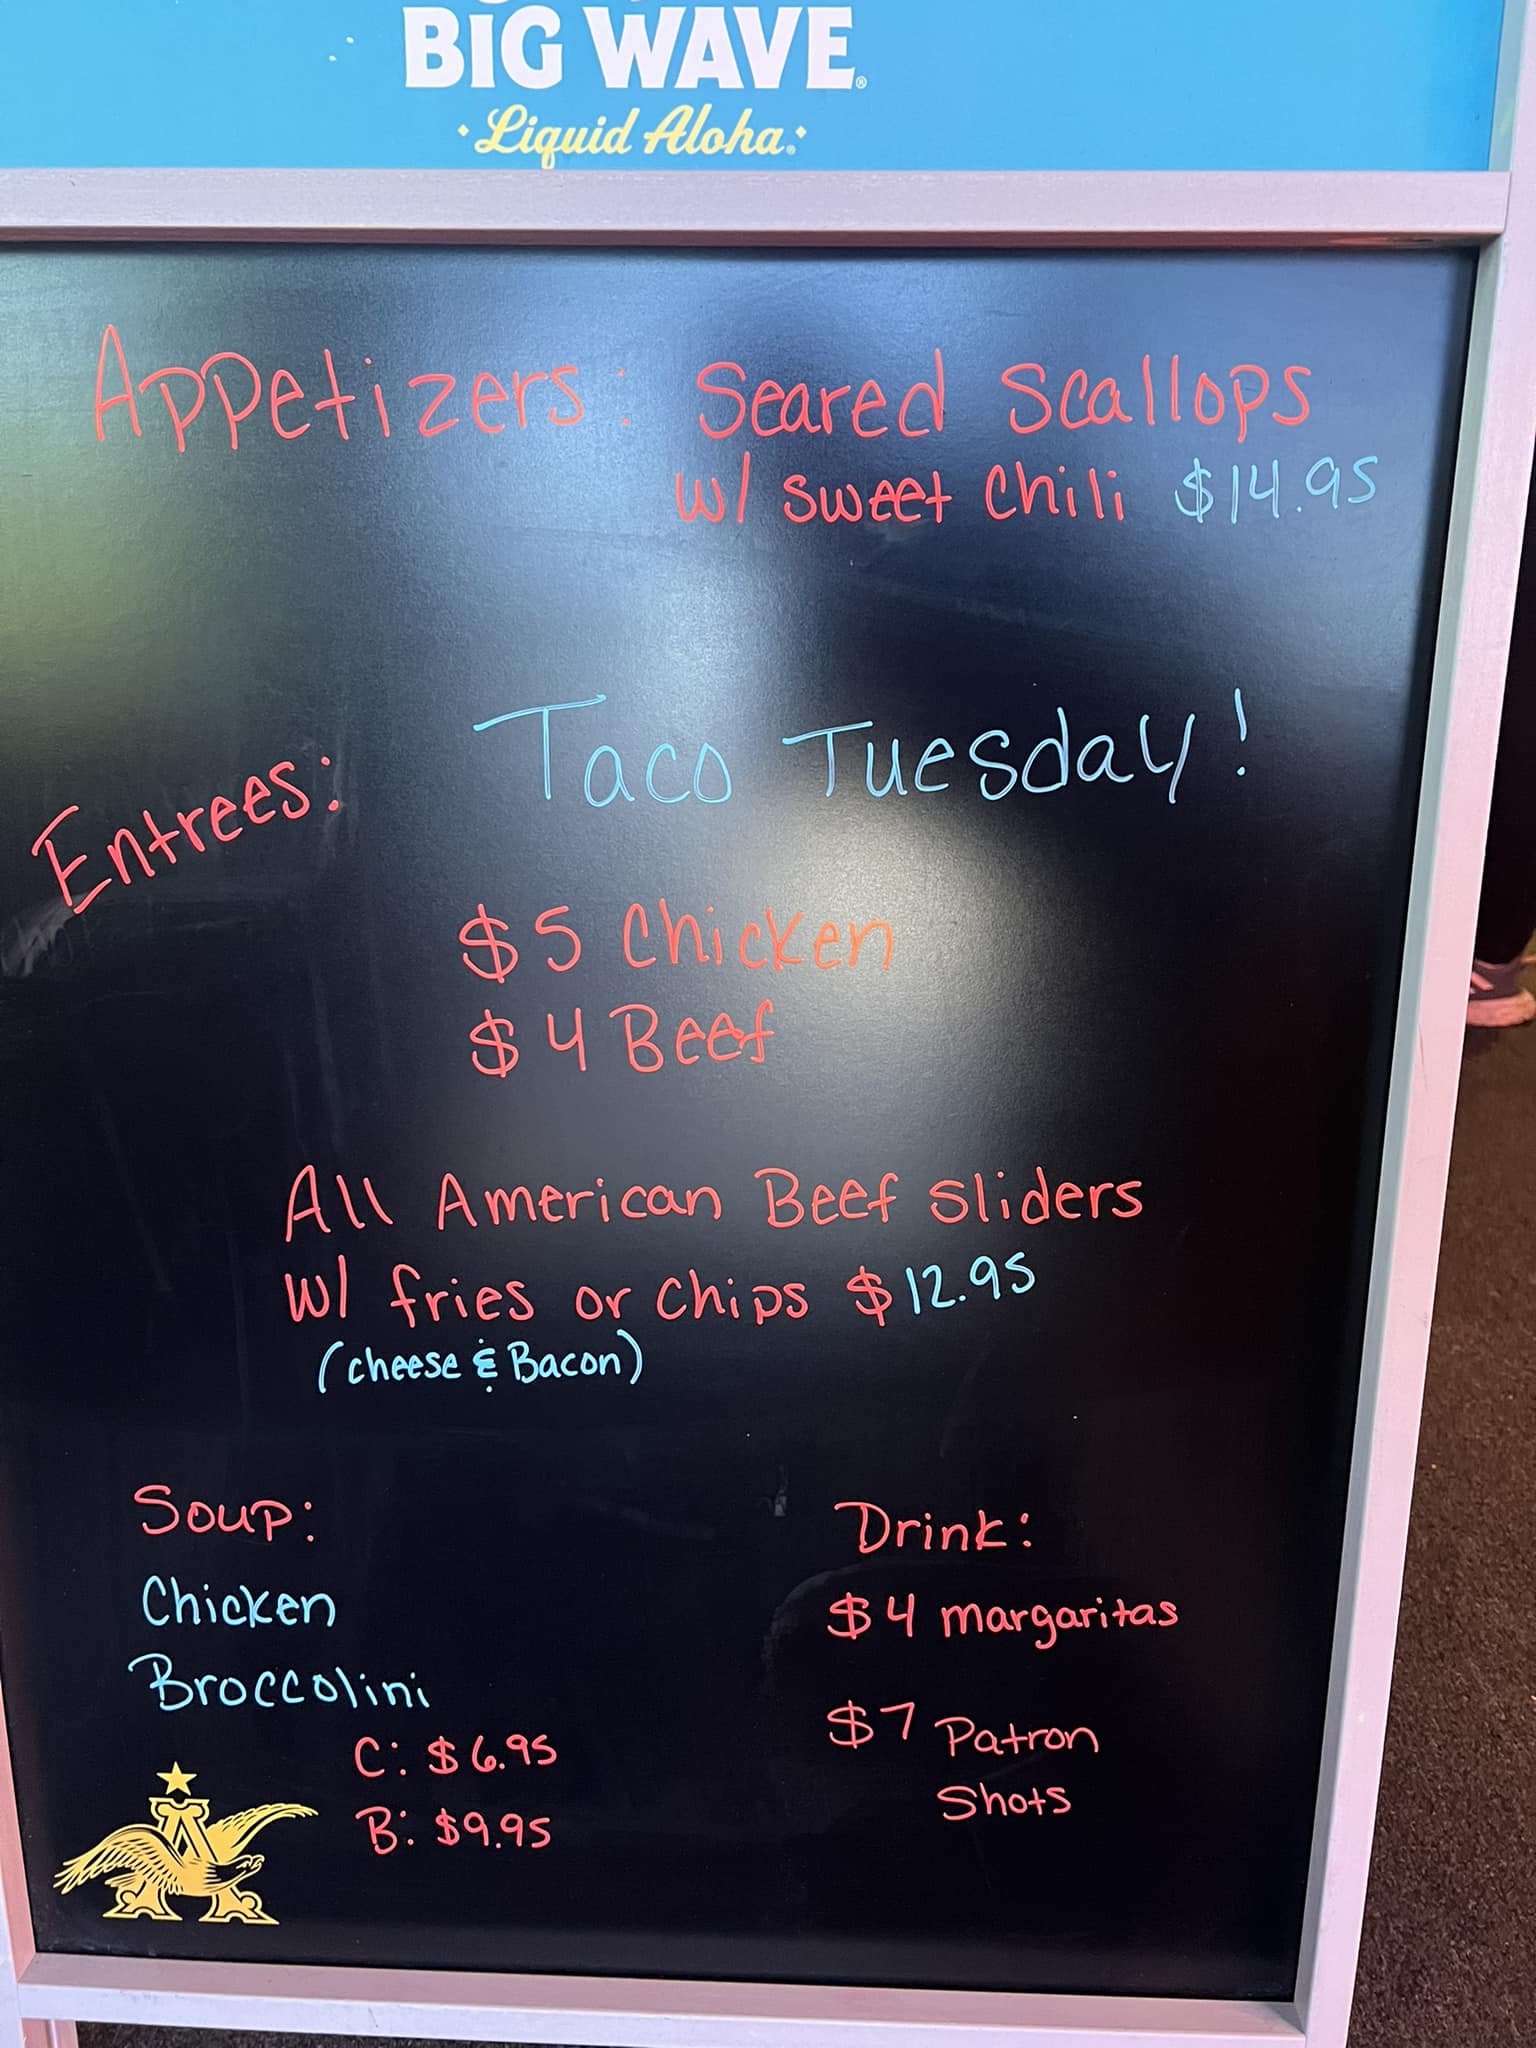 BIG WAVE®
Liquid Aloha®
Appetizers: Seared Scallops
w/ sweet chili $14.95
Taco Tuesday!
Entrees:
$5 Chicken
$4 Beef
All American Beef Sliders
w/ fries or chips $12.95
(cheese & Bacon)
Soup:
Chicken
Broccolini
C: $6.95
B: $9.95
Drink:
$4 margaritas
$7 Patron
Shots
A